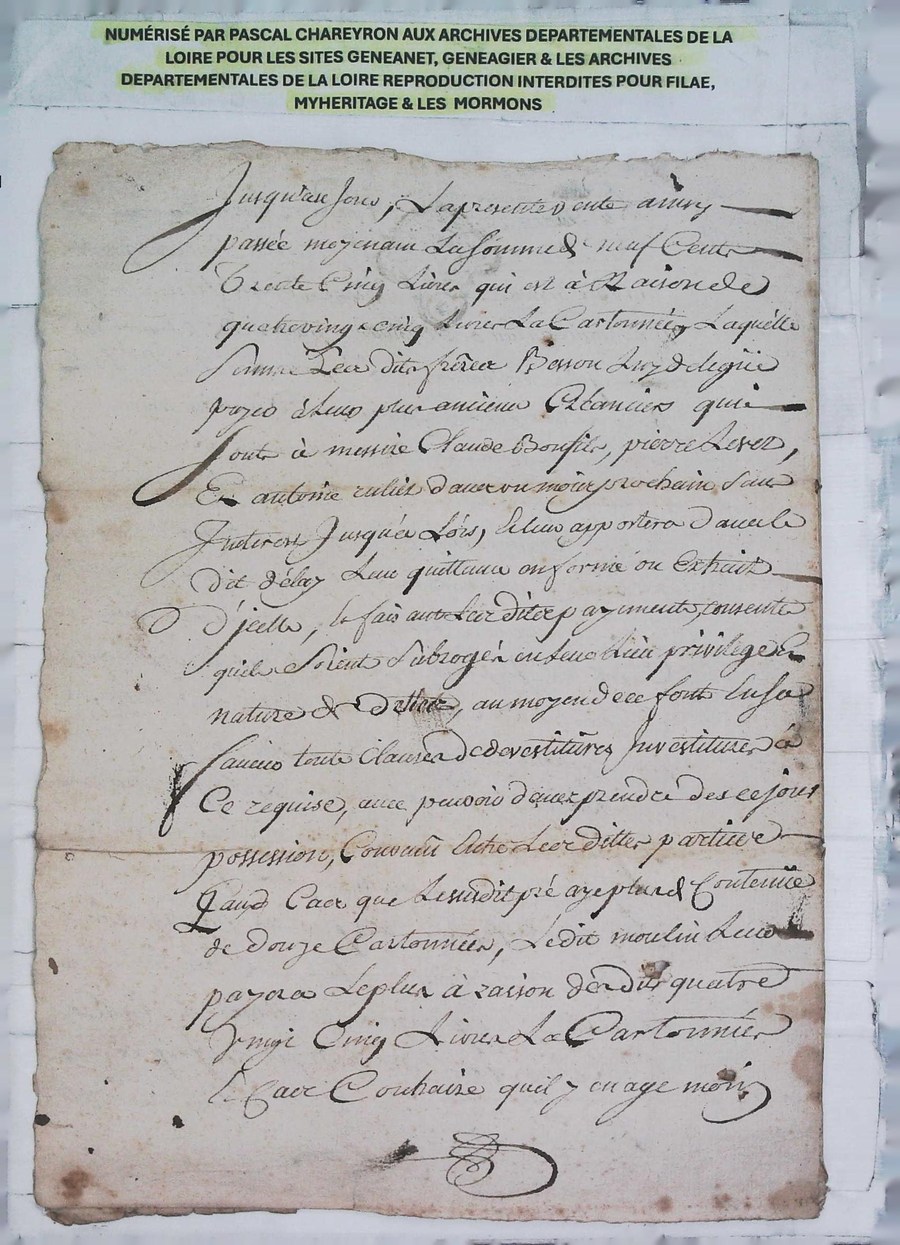 NUMÉRISÉ PAR PASCAL CHAREYRON AUX ARCHIVES DEPARTEMENTALES DE LA
LOIRE POUR LES SITES GENEANET, GENEAGIER & LES ARCHIVES
DEPARTEMENTALES DE LA LOIRE REPRODUCTION INTERDITES POUR FILAE,
MYHERITAGE & LES MORMONS
Jusqu'au Jour, La presente vente ainsy
passée moyenant La Somme de neuf Cents
Trente Cinq Livres qui est à Raison de
quatrevingt cinq Livres La Cartonnée, Laquelle
Somme Les dits frères Besson
payer à Leurs plus anciens Créanciers qui
Sont à messire Claude Bonfils, pierre
Et antoine d'avec un mois prochain Sans
Interest Jusqu'a Lors, & Leur apportera d'avec le
dit délay Leur quittance en forme ou Extrait
D'jcelle, & fais ant Lesdites payements, consente
quil Soient Subrogés en Leur Lieu privilege Et
nature de Dette, au moyen de ce font
toute Clauses de devestitures Investitures à
Ce requise, avec pouvoir d'avec prendre des ce jour
possession, Convenu Entre Lesdittes parties
Cas que Lesusdit pré aye plus de Contenue
de Douze Cartonnées, Ledit moulin Leur
payera Le plus à raison desdits quatre
Vingt Cinq Livres La Cartonnée
& Cas Contraire quil y en aye moins